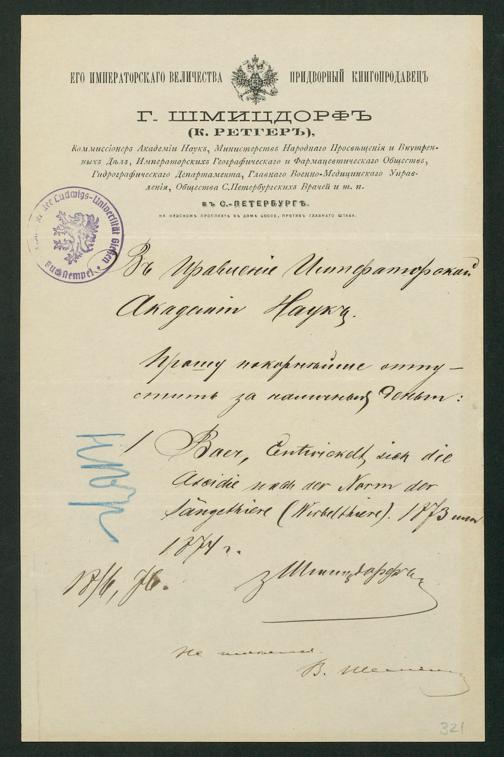 ЕГО ИМПЕРАТОРСКАГО ВЕЛИЧЕСТВА ПРИДВОРНЫЙ КНИГОПРОДАВЕЦЪ
Г. ШМИЦДОРФЪ
(К. РЕТГЕРЪ),
Коммисіонеръ Академіи Наукъ, Министерствъ Народнаго Просвѣщенія и Внутрен-
ныхъ Дѣлъ, Императорскихъ Географическаго и Фармацевтическаго Обществъ,
Гидрографическаго Департамента, Главнаго Военно-Медицинскаго Управ-
ленія, Общества С.Петербургскихъ Врачей и т. п.
ВЪ С.-ПЕТЕРБУРГѢ.
НА НЕВСКОМЪ ПРОСПЕКТѢ ВЪ ДОМѢ ПРОТИВЪ ГЛАВНАГО ШТАБА.
der Ludwigs-Universität Gießen
Buchstempel
Въ Правленіе Императорской
Академіи Наукъ.
Прошу покорнѣйше отпу-
стить за наличныя деньги:
1 Baer, Entwickelt sich die
Ascidie nach der Norm der
Säugethiere (Wirbelthiere). 1873 или
1874 г.
18/6, 76.
Г Шмицдорфъ
Не имеется.
В.
321